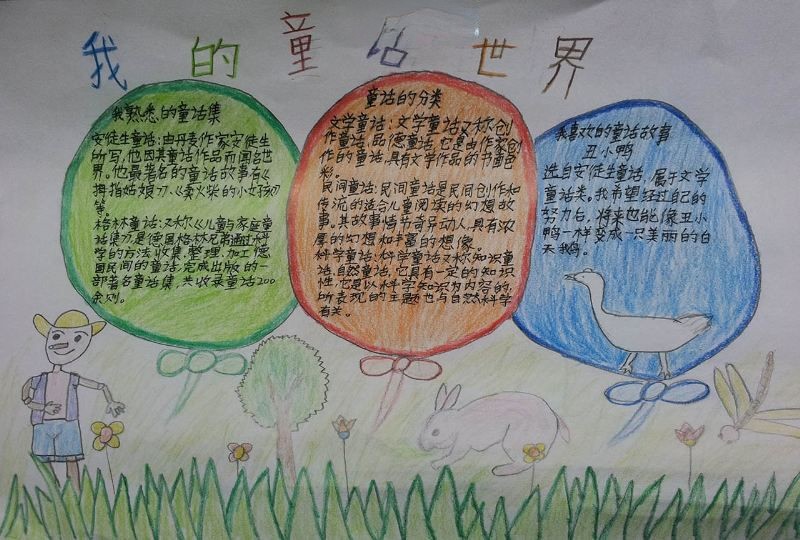 我的童话世界
我熟悉的童话集
安徒生童话:由丹麦作家安徒生
所写,他因其童话作品而闻名世
界。他最著名的童话故事有《
拇指姑娘》、《卖火柴的小女孩》
等。
格林童话:又称《儿童与家庭童
话集》是德国格林兄弟通过科
学的方法收集、整理、加工德
国民间的童话,完成出版的一
部著名童话集,共收录童话200
余则。
童话的分类
文学童话:文学童话又称创
作童话、品德童话,它是由作家创
作的童话,具有文学作品的书面色
彩。
民间童话:民间童话是民间创作和
传流的适合儿童阅读的幻想故
事。其故事情节奇异动人,具有浓
厚的幻想和丰富的想像。
科学童话:科学童话又称知识童
话、自然童话,它具有一定的知识
性,它是以科学知识为内容的,
所表现的主题也与自然科学
有关。
我喜欢的童话故事
丑小鸭
选自安徒生童话,属于文学
童话类。我希望经过自己的
努力后,将来也能像丑小
鸭一样变成一只美丽的白
天鹅。